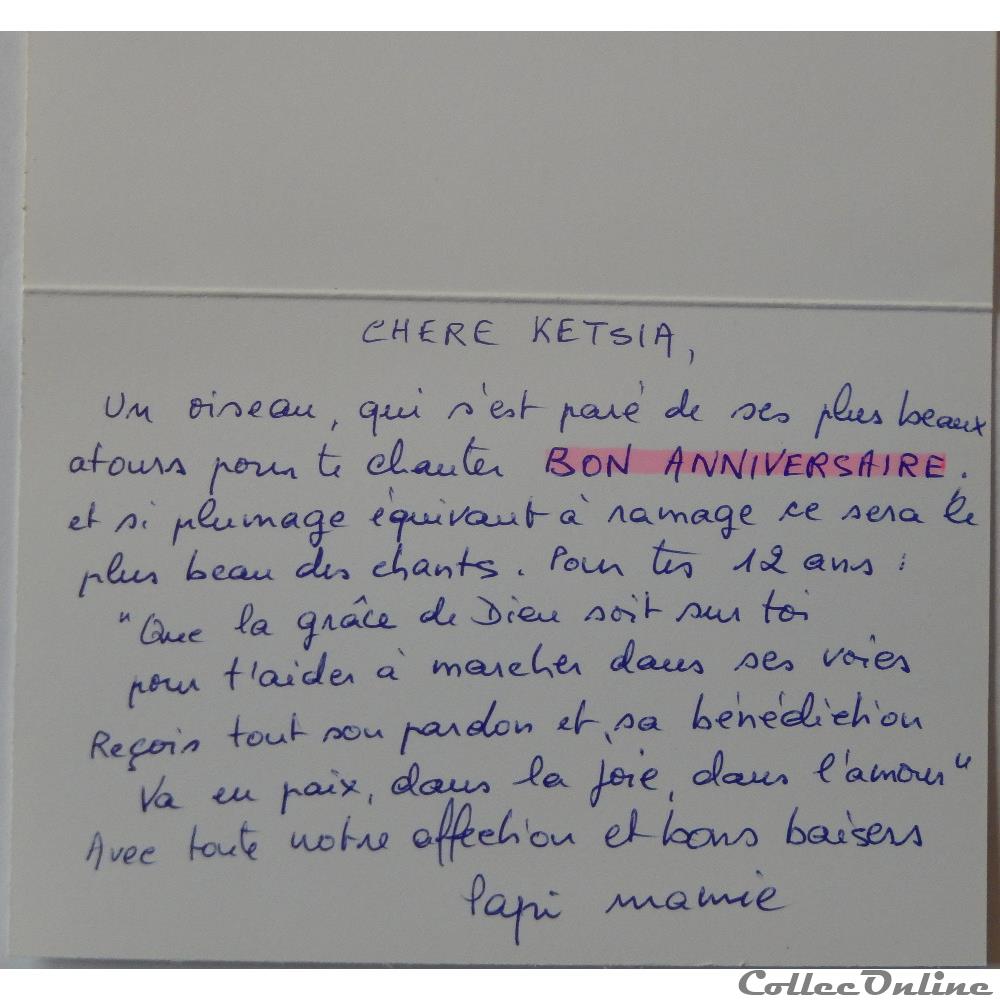 CHERE KETSIA,
Un oiseau, qui s'est paré de ses plus beaux
atours pour te chanter BON ANNIVERSAIRE.
et si plumage équivaut à ramage ce sera le
plus beau des chants. Pour tes 12 ans :
"Que la grâce de Dieu soit sur toi
pour t'aider à marcher dans ses voies
Reçois tout son pardon et sa bénédiction
Va en paix, dans la joie, dans l'amour"
Avec toute notre affection et bons baisers
Papi mamie
CollecOnline